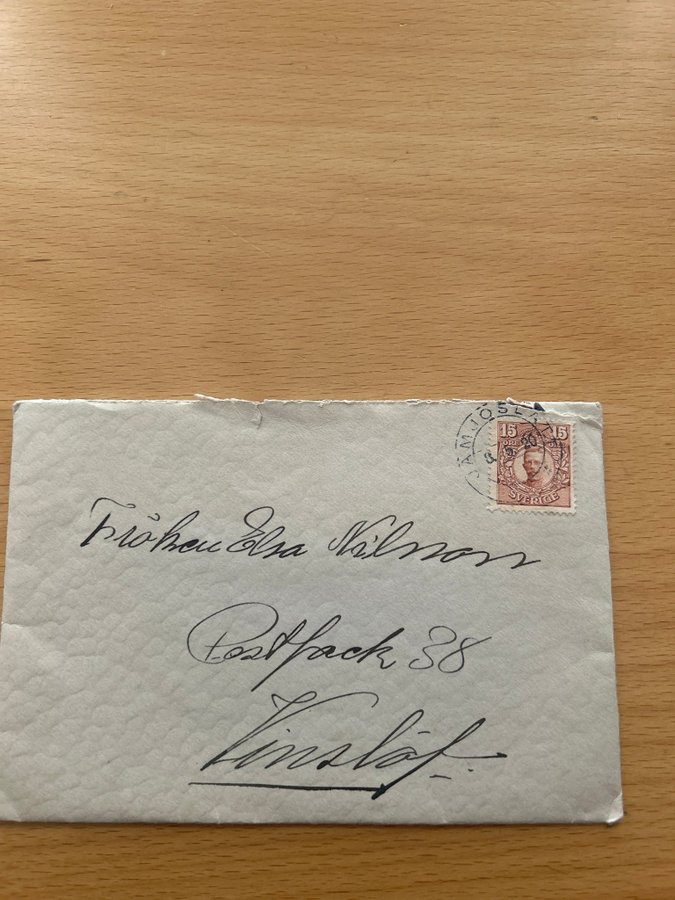 JÄMJÖSLÄTT
8 5 20
15 15
ÖRE
SVERIGE
Fröken Elsa Nilsson
Postfack 38
Vinslöf.